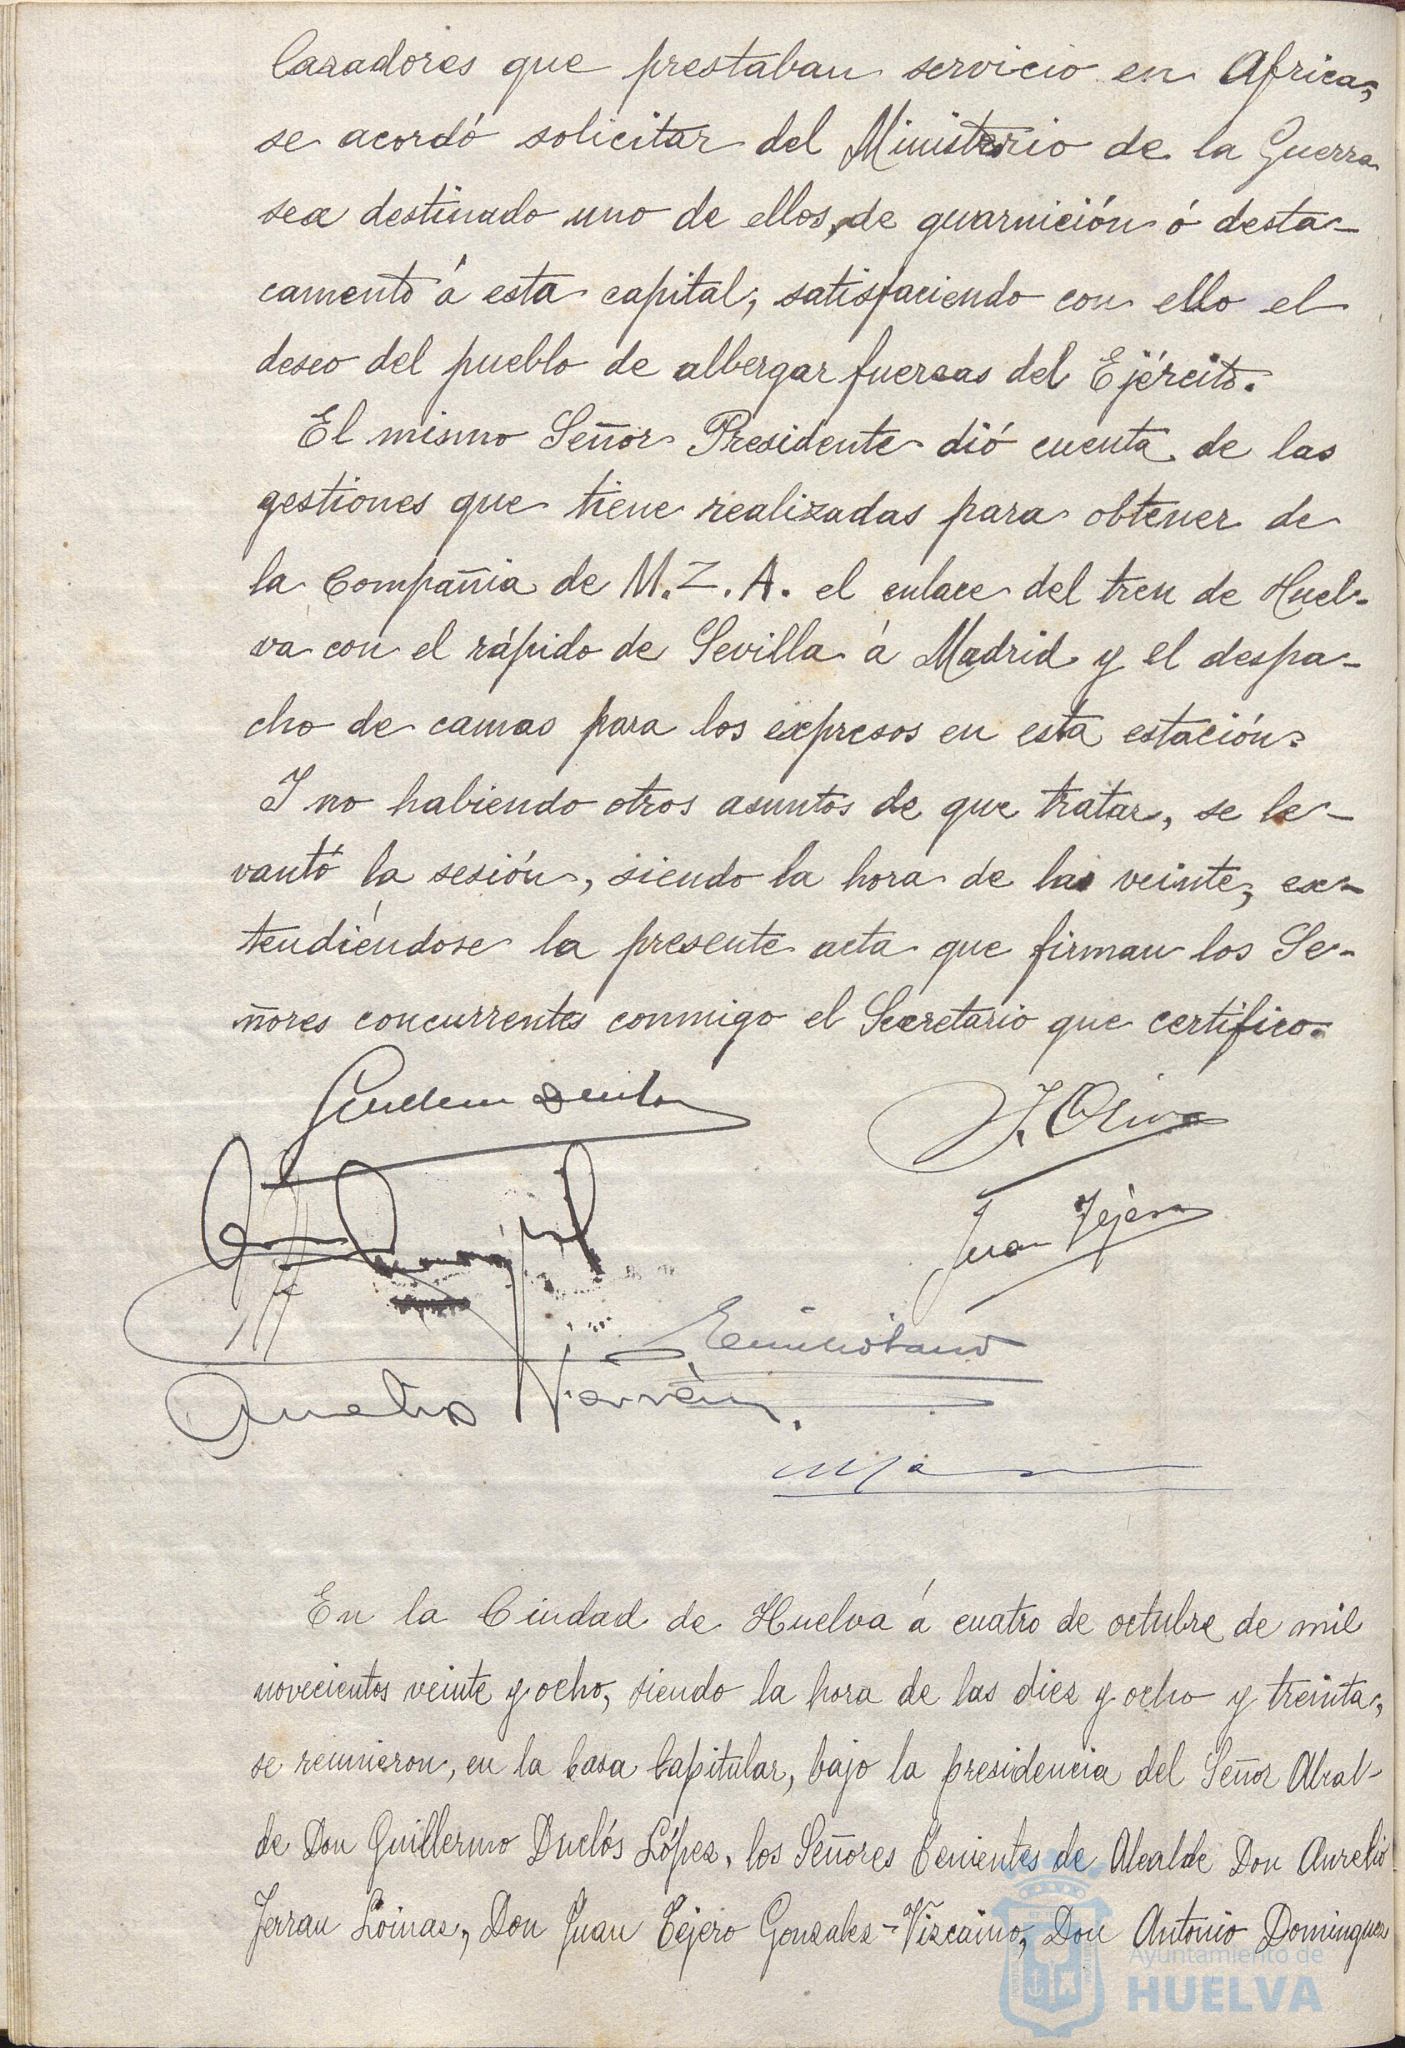 Cazadores que prestaban servicio en Africa,
se acordó solicitar del Ministerio de la Guerra
sea destinado uno de ellos, de guarnición ó desta-
camento á esta capital, satisfaciendo con ello el
deseo del pueblo de albergar fuerzas del Ejército.
El mismo Señor Presidente dió cuenta de las
gestiones que tiene realizadas para obtener de
la Compañia de M.Z.A. el enlace del tren de Huel-
va con el rápido de Sevilla á Madrid y el despa-
cho de camas para los expresos en esta estación.
Y no habiendo otros asuntos de que tratar, se le-
vantó la sesión, siendo la hora de las veinte, ex-
tendiéndose la presente acta que firman los Se-
ñores concurrentes conmigo el Secretario que certifico.
J. Oliva
Juan Tejero
Aurelio
En la Ciudad de Huelva á cuatro de octubre de mil
novecientos veinte y ocho, siendo la hora de las diez y ocho y treinta,
se reunieron, en la Casa Capitular, bajo la presidencia del Señor Alcal-
de Don Guillermo Duclós López, los Señores Tenientes de Alcalde Don Aurelio
Jerran Loinaz, Don Juan Tejero Gonzalez-Vizcaino, Don Antonio Dominguez
Ayuntamiento de
HUELVA